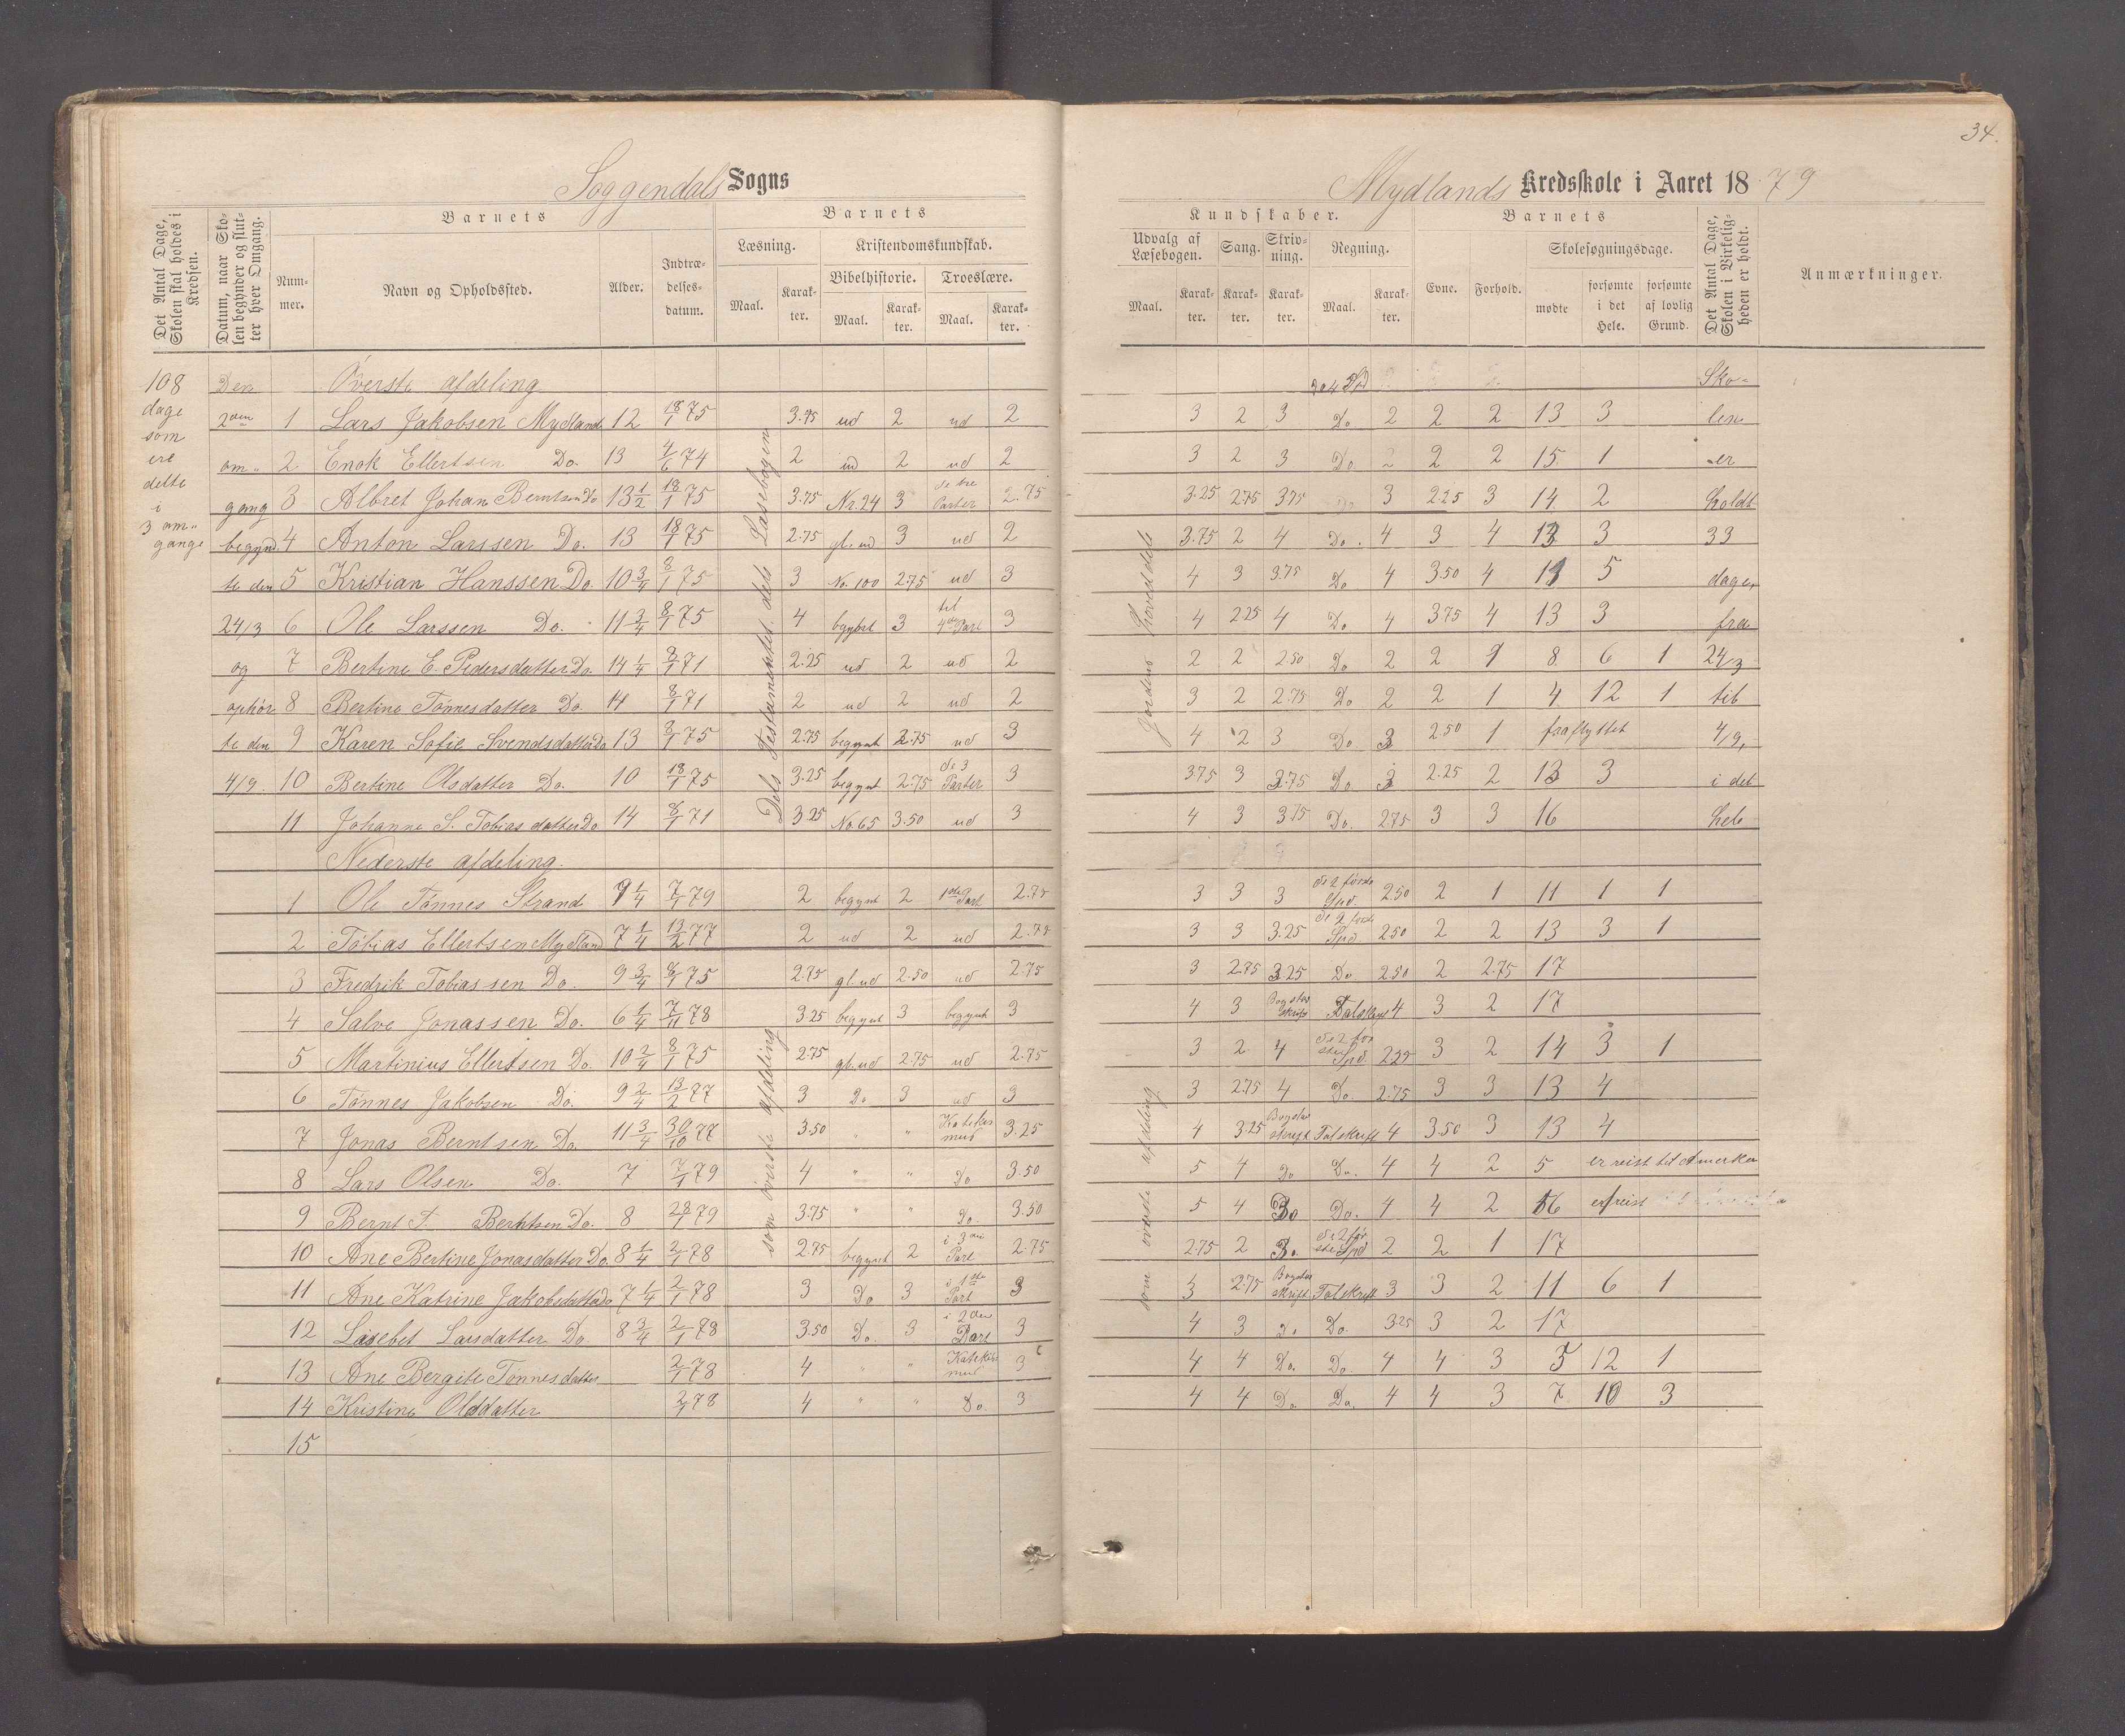 34.
Soggendals Sogns
Mydlands Kredsskole i Aaret 1879
Det Antal Dage, Skolen skal holdes i Kredsen.
Datum, naar Skolen begynder og slutter hver Omgang.
Barnets
Nummer.
Navn og Opholdssted.
Alder.
Indtrædelsesdatum.
Barnets
Læsning.
Kristendomskundskab.
Bibelhistorie.
Troeslære.
Maal.
Karakter.
Maal.
Karakter.
Maal.
Karakter.
Kundskaber.
Udvalg af Læsebogen.
Sang.
Skrivning.
Regning.
Maal.
Karakter.
Karakter.
Karakter.
Maal.
Karakter.
Barnets
Evne.
Forhold.
Skolesøgningsdage.
mødte
forsømte i det Hele.
forsømte af lovlig Grund.
Det Antal Dage, Skolen i Virkeligheden er holdt.
Anmærkninger.
108 dage som ere delte i 3 omgange
Den 2den omgang begyndte den 24/3 og ophørte den 4/9.
Dels Testamentet dels Læsebogen
Jordens hoveddele
Skolen er holdt 33 dage, fra 24/3 til 4/9, i det hele
Överste afdeling
1 Lars Jakobsen Mydland 12 18/1 75 3.75 ud 2 ud 2 3 2 3 Do 2 2 2 13 3
2 Enok Ellertsen Do. 13 4/6 74 2 ud 2 ud 2 3 2 3 Do 2 2 2 15 1
3 Albret Johan Berntsen Do 13 1/2 18/1 75 3.75 Nr. 24 3 de tre Parter 2.75 3.25 2.75 3.75 Do 3 2.25 3 14 2
4 Anton Larssen Do. 13 18/1 75 2.75 gl. ud 3 ud 2 3.75 2 4 Do. 4 3 4 13 3
5 Kristian Hanssen Do. 10 3/4 8/1 75 3 No. 100 2.75 ud 3 4 3 3.75 Do 4 3.50 4 11 5
6 Ole Larssen Do. 11 3/4 8/1 75 4 3 til 4de Part 3 4 2.25 4 Do 4 3.75 4 13 3
7 Bertine E. Pedersdatter Do. 14 1/4 8/1 71 2.25 ud 2 ud 2 2 2 2.50 Do 2 2 1 8 6 1
8 Bertine Tönnesdatter Do. 14 8/1 71 2 ud 2 ud 2 3 2 2.75 Do 2 2 1 4 12 1
9 Karen Sofie Svendsdatter Do 13 8/1 75 2.75 begynt 2.75 ud 3 4 2 3 Do 3 2.50 1 fraflyttet
10 Bertine Olsdatter Do. 10 18/1 75 3.25 begynt 2.75 de 3 Parter 3 3.75 3 3.75 Do. 3 2.25 2 13 3
11 Johanne S. Tobiasdatter Do 14 8/1 71 3.25 No 65 3.50 ud 3 4 3 3.75 Do. 2.75 3 3 16
Nederste afdeling.
som överste afdeling
som överste afdeling
1 Ole Tönnes Strand 9 1/4 7/1 79 2 begynt 2 1ste Part 2.75 3 3 3 de 2 förste Spd. 2.50 2 1 11 1 1
2 Tobias Ellertsen Mydland 7 1/4 13/2 77 2 ud 2 ud 2.75 3 3 3.25 de 2 förste Spd 2.50 2 2 13 3 1
3 Fredrik Tobiassen Do. 9 3/4 8/1 75 2.75 gl. ud 2.50 ud 2.75 3 2.75 3.25 Do 2.50 2 2.75 17
4 Salve Jonassen Do. 6 1/4 7/11 78 3.25 begynt 3 begynt 3 4 3 Bogstavskrift Talskrift 4 3 2 17
5 Martinius Ellertsen Do. 10 2/4 8/1 75 2.75 gl. ud 2.75 ud 2.75 3 2 4 de 2 förste Spd. 2.25 3 2 14 3 1
6 Tönnes Jakobsen Do. 9 2/4 13/2 77 3 Do 3 ud 3 3 2.75 4 Do. 2.75 3 3 13 4
7 Jonas Berntsen Do. 11 3/4 30/10 77 3.50 " " Katekismus 3.25 4 3.25 Bogstavskrift Talskrift 4 3.50 3 13 4
8 Lars Olsen Do. 7 7/1 79 4 " " Do 3.50 5 4 Do Do. 4 4 2 5 er reist til Amerika
9 Bernt T. Berntsen Do. 8 28/1 79 3.75 " " Do. 3.50 5 4 Do Do. 4 4 2 16
10 Ane Bertine Jonasdatter Do. 8 1/4 2/1 78 2.75 begynt 2 i 3die Part 2.75 2.75 2 3. de 2 förste Spd 2 2 1 17
11 Ane Katrine Jakobsdatter Do 7 1/4 2/1 78 3 Do 3 i 1ste Part 3 3 2.75 Bogstavskrift Talskrift 3 3 2 11 6 1
12 Lisebet Larsdatter Do. 8 3/4 2/1 78 3.50 Do. 3 i 2den Part 3 4 3 Do Do. 3.25 3 2 17
13 Ane Bergite Tönnesdatter 2/1 78 4 " " Katekismus 3 4 4 Do. Do 4 4 3 5 12 1
14 Kristine Olsdatter 2/1 78 4 " " Do. 3 4 4 Do Do. 4 4 3 7 10 3
15